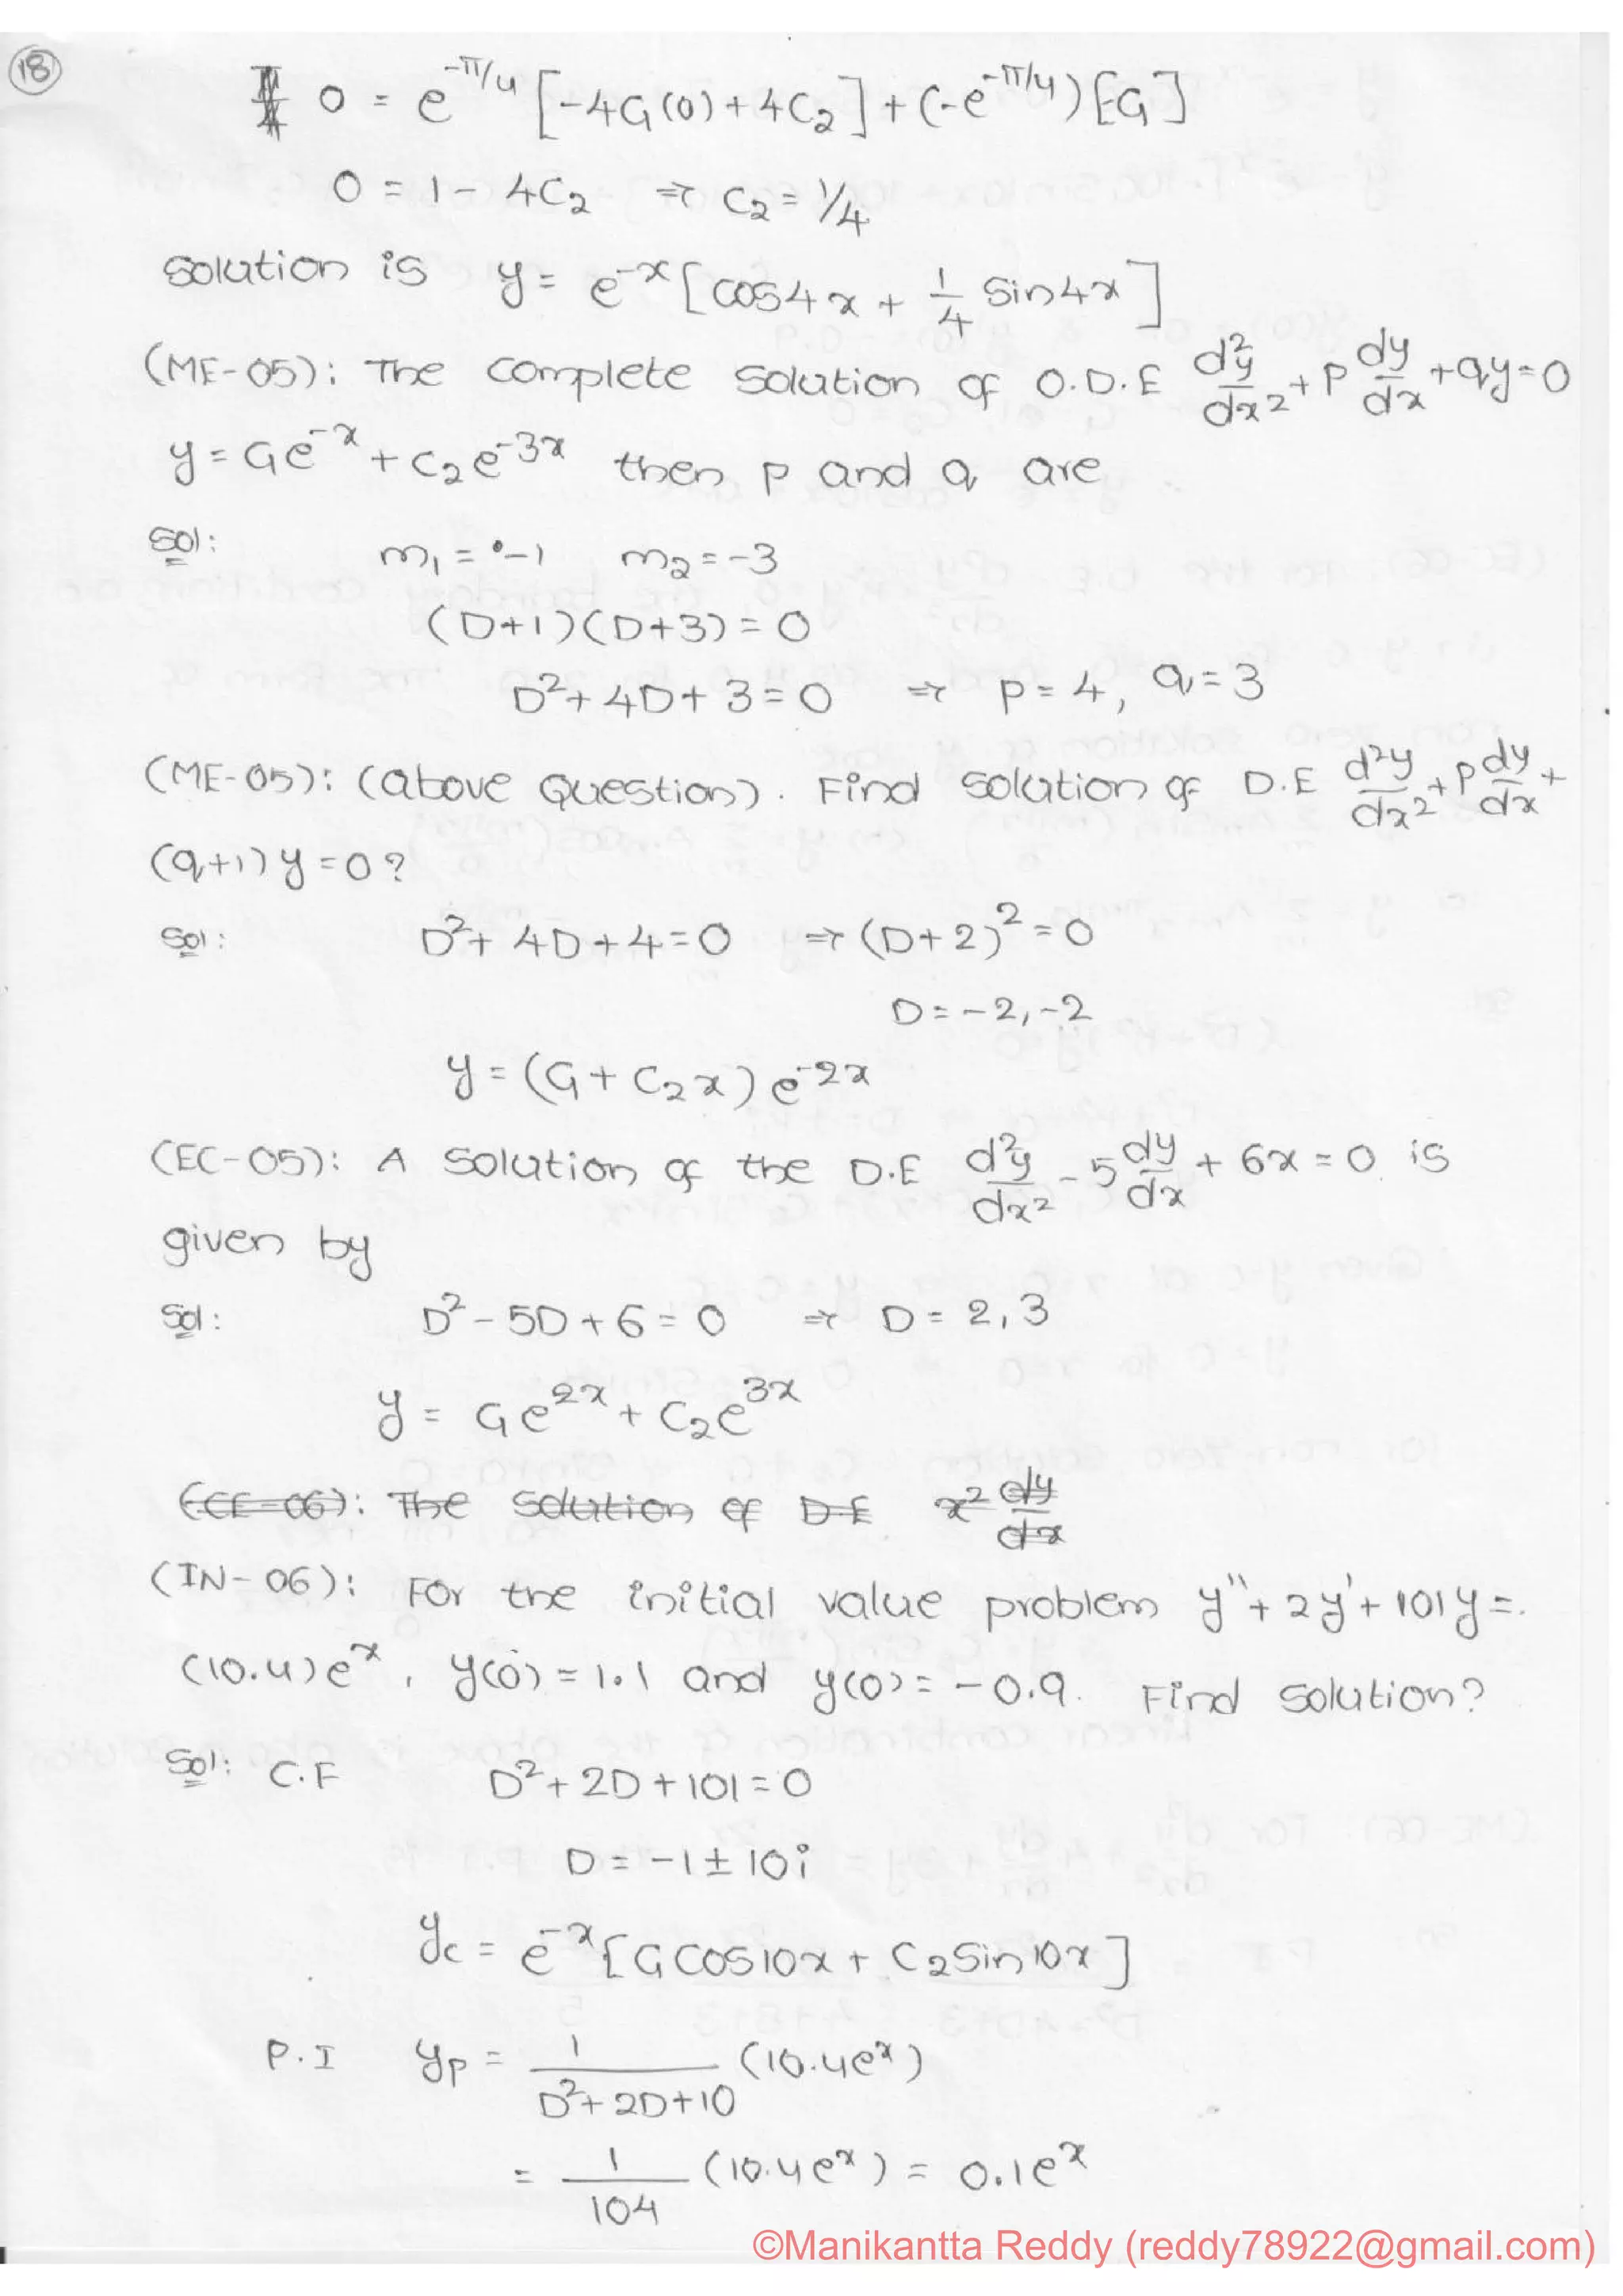 18
0 = e^{-π/4} [-4C₁(0) + 4C₂] + (-e^{-π/4}) [-C₁]
0 = 1 - 4C₂ ⇒ C₂ = 1/4
solution is y = e^{-x} [cos4x + 1/4 sin4x]
(ME-05): The complete solution of O.D.E d²y/dx² + P dy/dx + qy = 0
y = C₁e^{-x} + C₂e^{-3x} then p and q are
Sol: m₁ = -1 m₂ = -3
(D+1)(D+3) = 0
D² + 4D + 3 = 0 ⇒ P = 4, q = 3
(ME-05): (above Question). Find solution of D.E d²y/dx² + P dy/dx +
(q+1)y = 0?
Sol: D² + 4D + 4 = 0 ⇒ (D+2)² = 0
D = -2, -2
y = (C₁ + C₂x) e^{-2x}
(EC-05): A solution of the D.E d²y/dx² - 5 dy/dx + 6x = 0 is
given by
Sol: D² - 5D + 6 = 0 ⇒ D = 2, 3
y = C₁e^{2x} + C₂e^{3x}
(CE-06): The solution of D.E x² dy/dx
(IN-06): For the initial value problem y'' + 2y' + 101y =
(10.4)e^x, y(0) = 1.1 and y(0) = -0.9. Find solution?
Sol: C.F D² + 2D + 101 = 0
D = -1 ± 10i
y_c = e^{-x} [C₁cos10x + C₂Sin10x]
P.I y_p = 1/(D² + 2D + 10) (10.4e^x)
= 1/104 (10.4e^x) = 0.1e^x
©Manikantta Reddy (reddy78922@gmail.com)